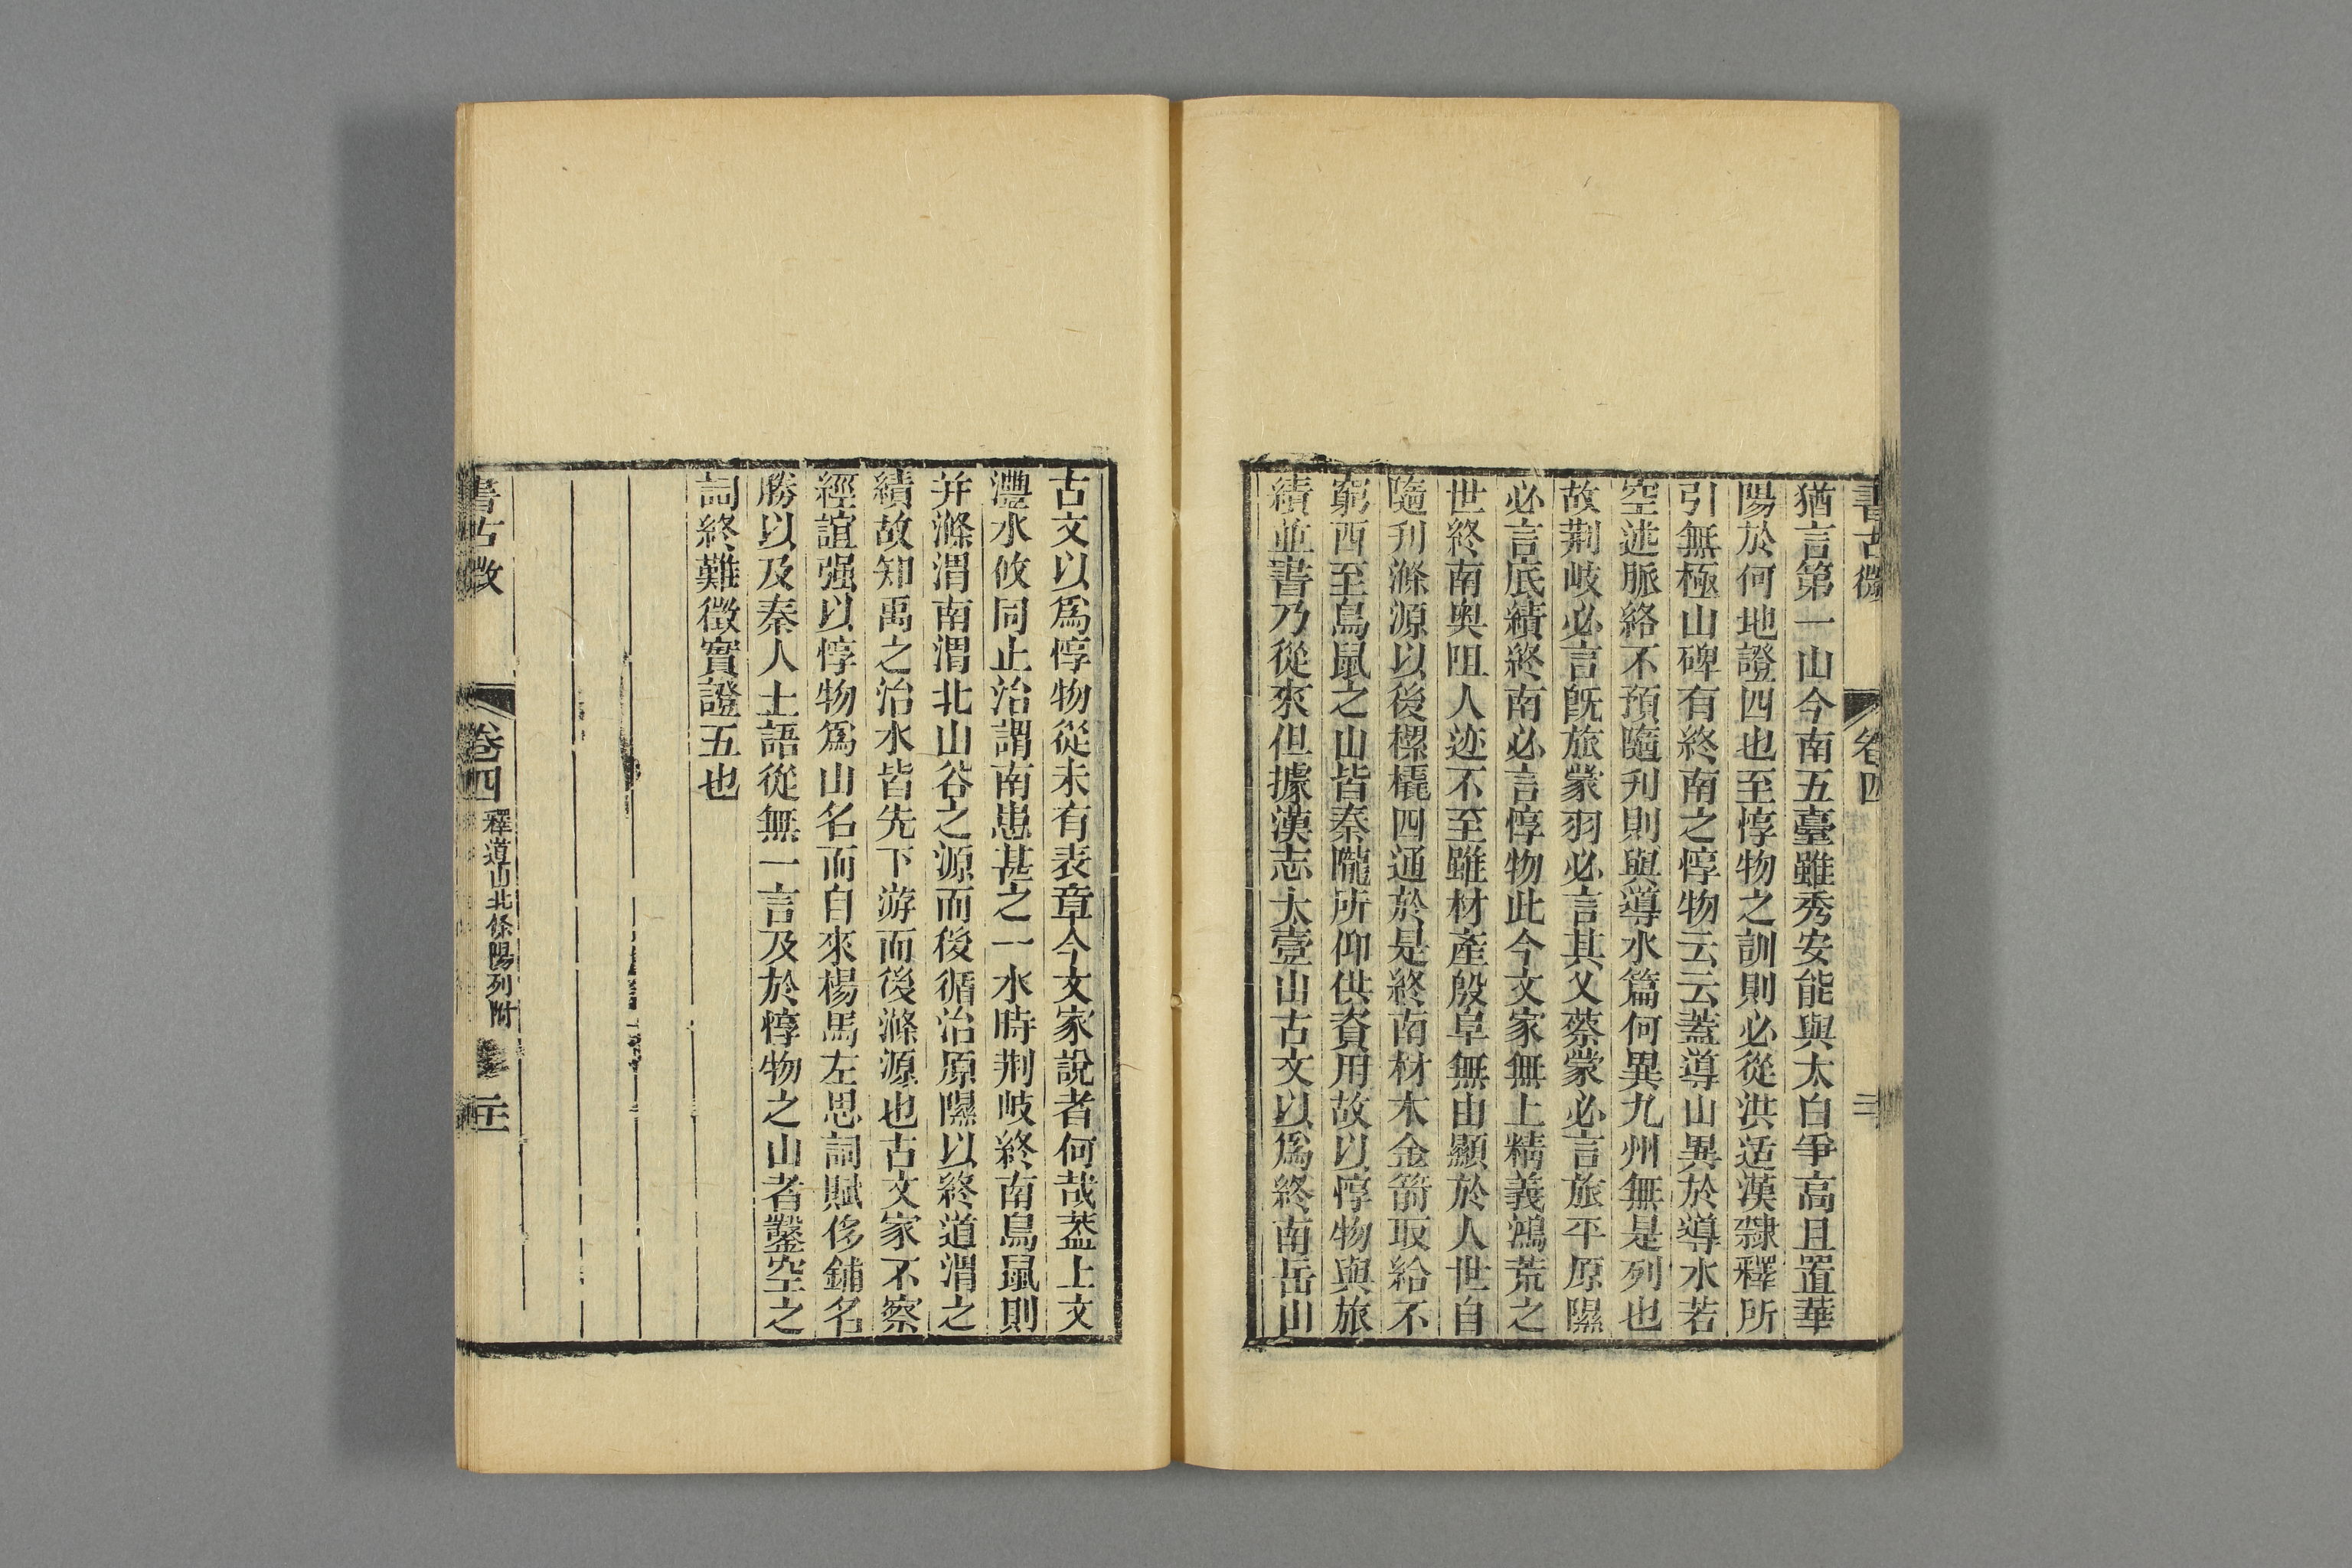 書古微
卷四
猶言第一山今南五臺雖秀安能與太白爭高且置華
陽於何地證四也至惇物之訓則必從洪适漢隸釋所
引無極山碑有終南之惇物云云蓋導山異於導水若
空述脈絡不預隨刋則與導水篇何異九州無是列也
故荆岐必言旣旅蒙羽必言其乂蔡蒙必言旅平原隰
必言底績終南必言惇物此今文家無上精義鴻荒之
世終南奥阻人迹不至雖材產殷阜無由顯於人世自
隨刋滌源以後樏橇四通於是終南材木金箭取給不
窮西至鳥鼠之山皆秦隴所仰供資用故以惇物與旅
績並書乃從來但據漢志太壹山古文以爲終南岳山
古文以爲惇物從未有表章今文家說者何哉葢上文
灃水攸同止治謂南患甚之一水時荆岐終南鳥鼠則
并滌渭南渭北山谷之源而後循治原隰以終道渭之
績故知禹之治水皆先下游而後滌源也古文家不察
經誼强以惇物爲山名而自來楊馬左思詞賦侈鋪名
勝以及秦人土語從無一言及於惇物之山者鑿空之
詞終難徵實證五也
書古微
卷四
釋道山北條陽列附